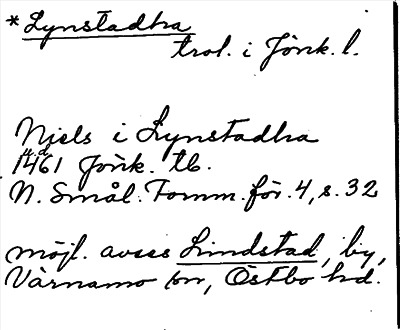 *Lynstadha
trol. i Jönk. l.
Njels i Lynstadha
1461 Jönk. tb.
N. Smål. Fornm. för. 4, s. 32
möjl. avses Lindstad, by,
Värnamo sn, Östbo hd.